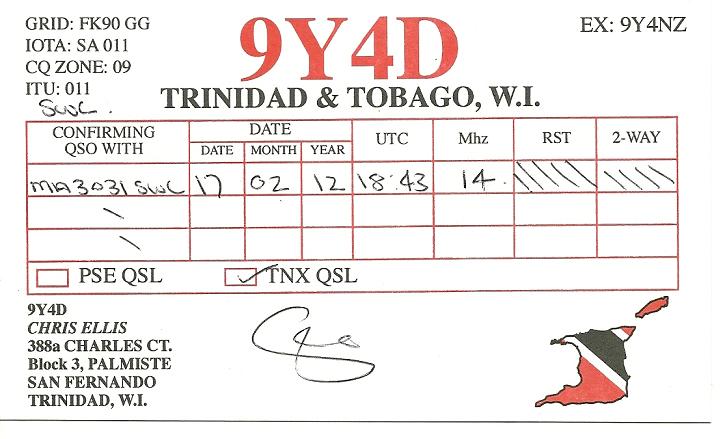 GRID: FK90 GG
IOTA: SA 011
CQ ZONE: 09
ITU: 011
SWL.
9Y4D
EX: 9Y4NZ
TRINIDAD & TOBAGO, W.I.
CONFIRMING QSO WITH
DATE
DATE MONTH YEAR UTC Mhz RST 2-WAY
MA3031SWL 17 02 12 18:43 14.
PSE QSL ✓ TNX QSL
9Y4D
CHRIS ELLIS
388a CHARLES CT.
Block 3, PALMISTE
SAN FERNANDO
TRINIDAD, W.I.